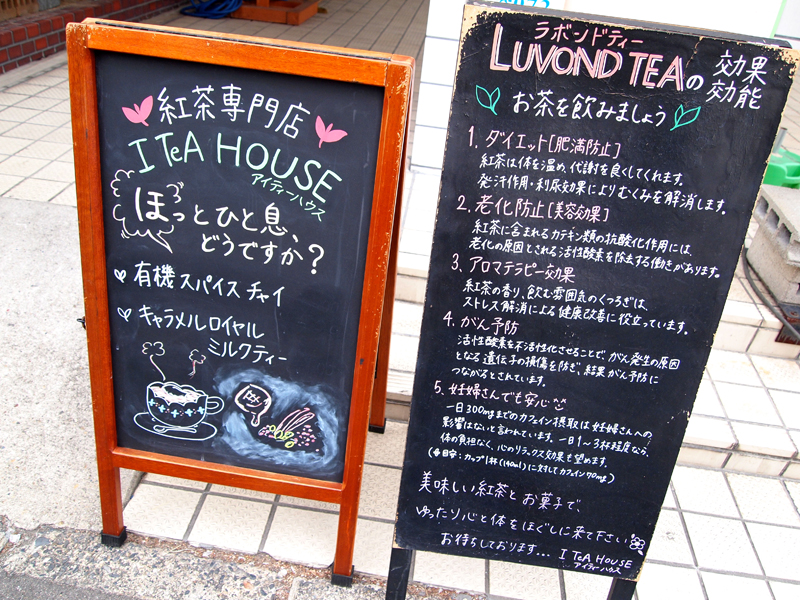 紅茶専門店
I TeA HOUSE
アイティーハウス
ほっとひと息、
どうですか?
有機スパイスチャイ
キャラメルロイヤル
ミルクティー
ラボンドティー
LUVOND TEAの効果
効能
お茶を飲みましょう
1. ダイエット[肥満防止]
紅茶は体を温め、代謝を良くしてくれます。
発汗作用・利尿効果によりむくみを解消します。
2. 老化防止[美容効果]
紅茶に含まれるカテキン類の抗酸化作用には、
老化の原因とされる活性酸素を除去する働きがあります。
3. アロマテラピー効果
紅茶の香り、飲む雰囲気のくつろぎは、
ストレス解消による健康改善に役立っています。
4. がん予防
活性酸素を不活性化させることで、がん発生の原因
となる遺伝子の損傷を防ぎ、結果がん予防に
つながるとされています。
5. 妊婦さんでも安心
一日300mgまでのカフェイン摂取は妊婦さんへの
影響はないと言われています。一日1〜3杯程度なら、
体の負担なく、心のリラックス効果も望めます。
(目安:カップ1杯(140ml)に対してカフェイン70mg)
美味しい紅茶とお菓子で、
ゆったり心と体をほぐしに来て下さい
お待ちしております... I TeA HOUSE
アイティーハウス